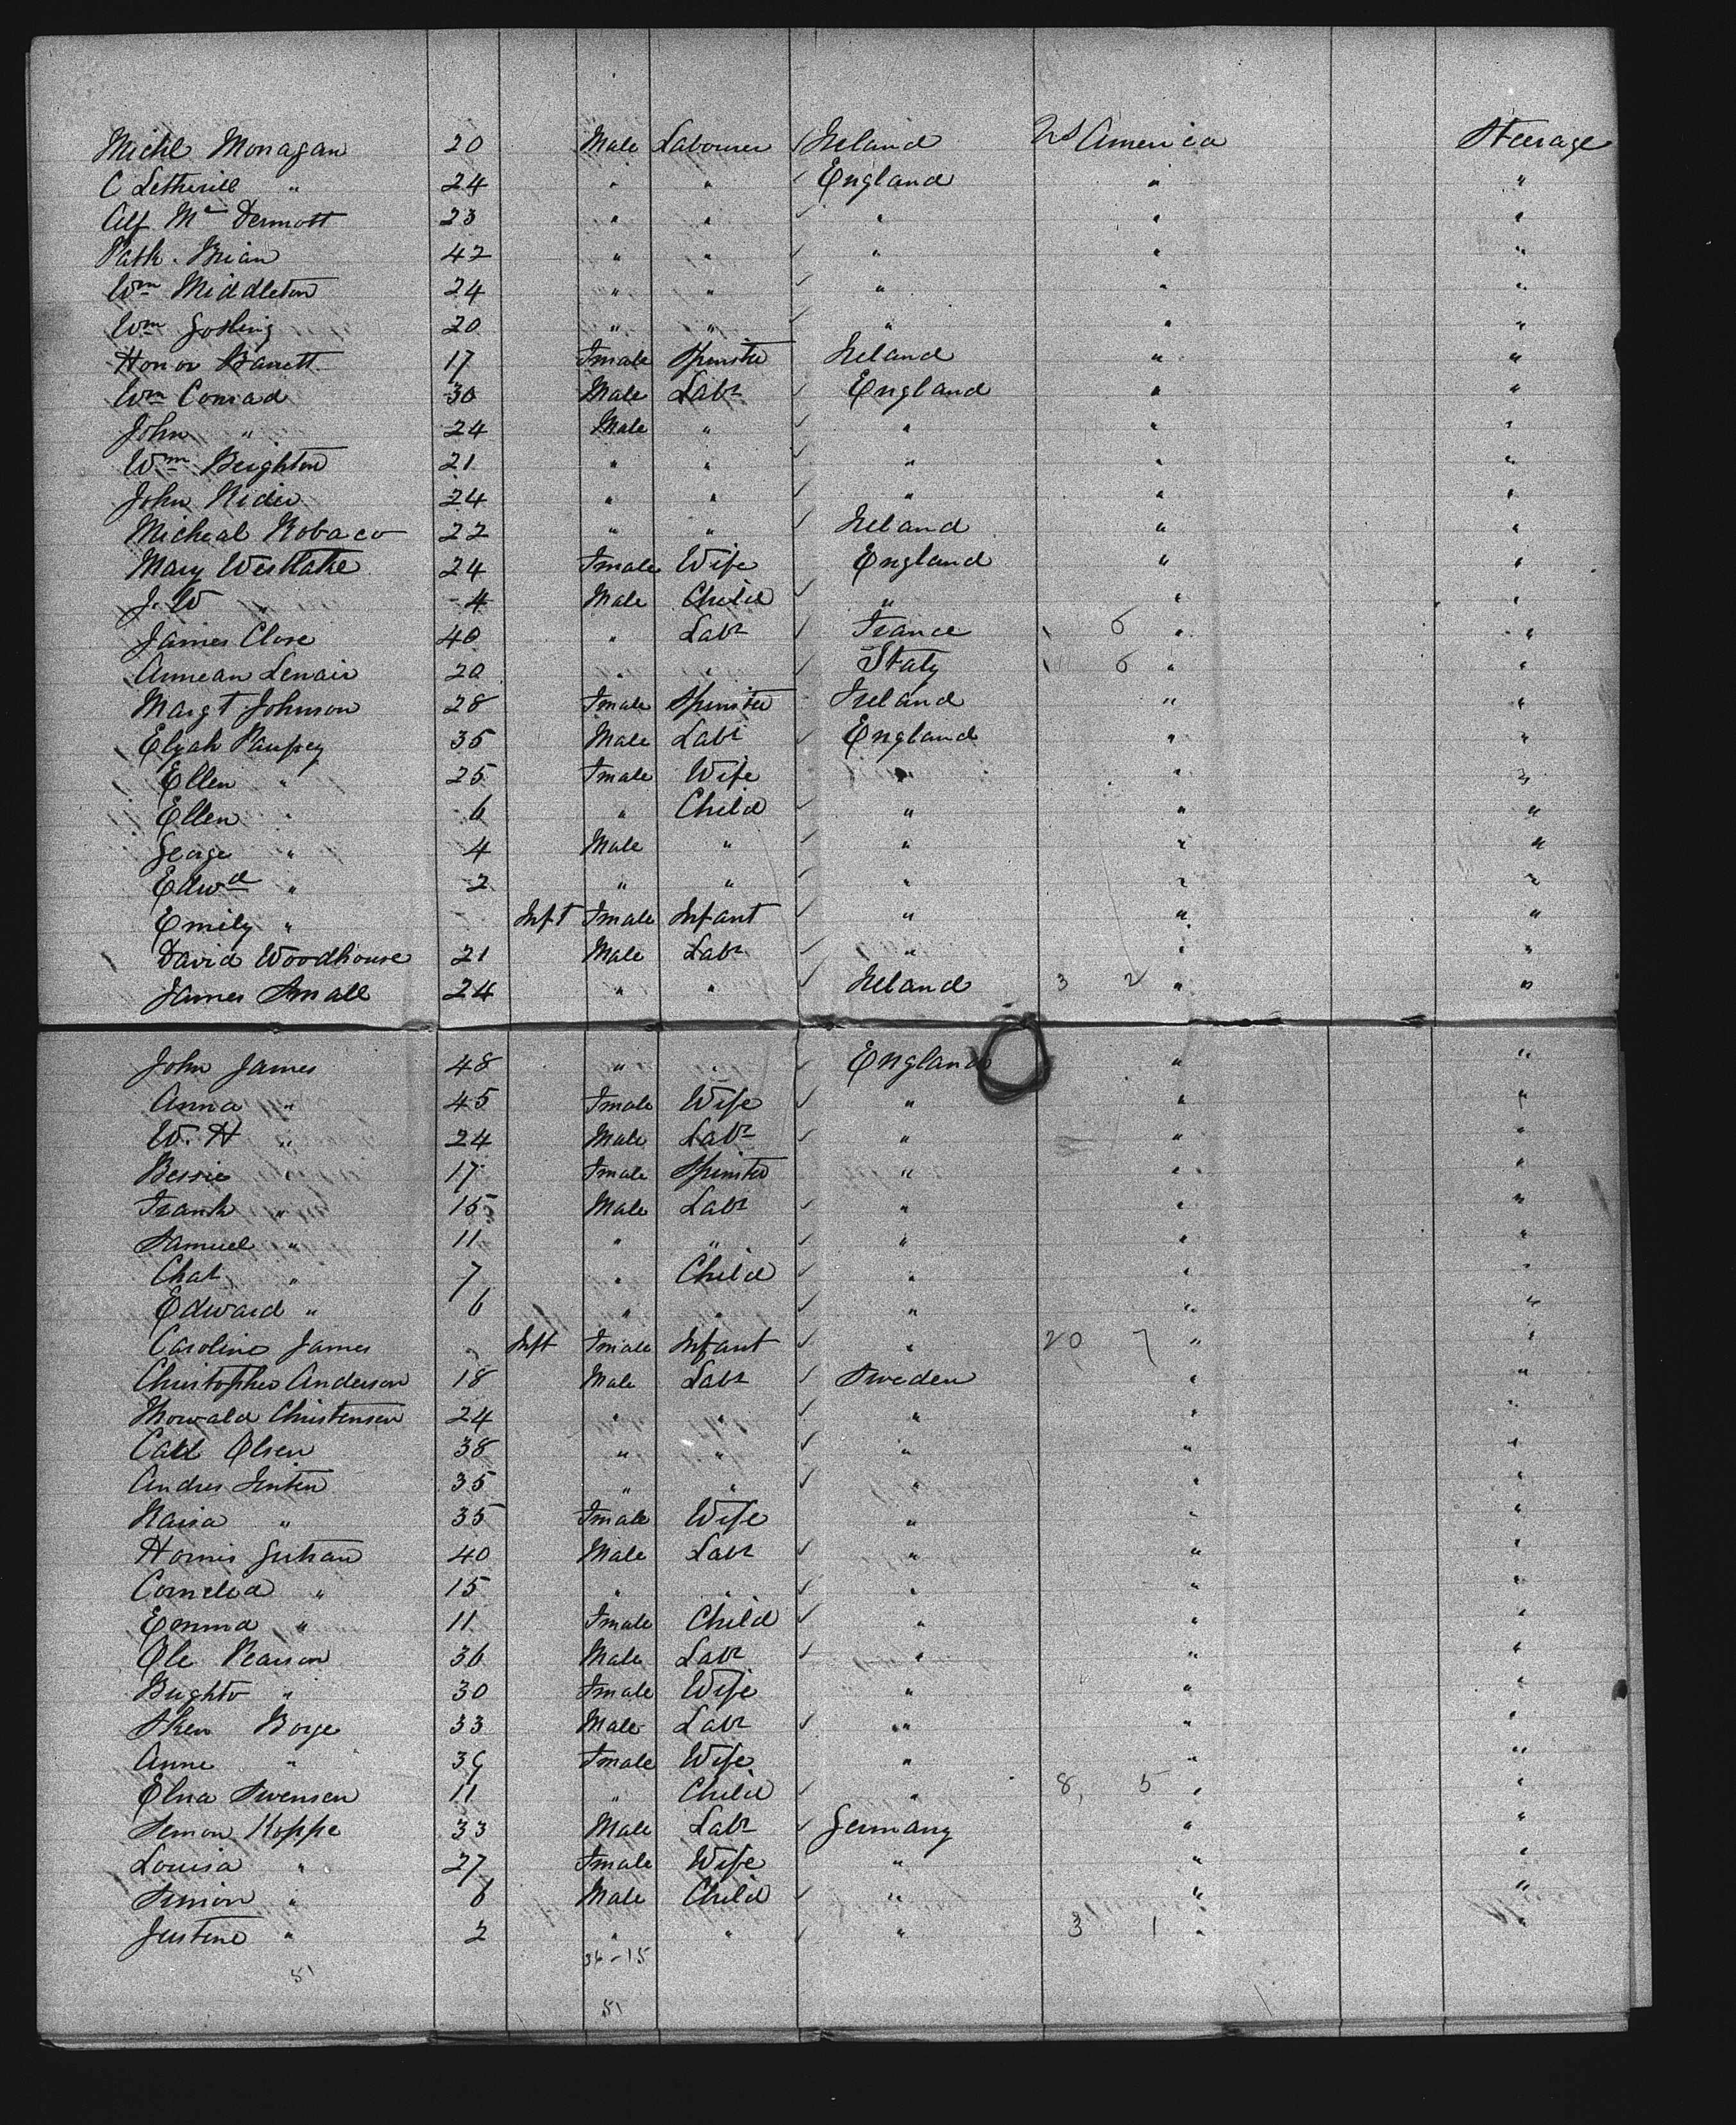 Michl Monagan 20 Male Labourer Ireland US America Steerage
C Letherill " 24 " " England " "
Alf Mc Dermott 23 " " " " "
Patk. Brian 42 " " " " "
Wm Middleton 24 " " " " "
Wm Gosling 20 " " " " "
Honor Barrett 17 Fmale Spinster Ireland " "
Wm Conrad 30 Male Labr England " "
John " 24 Male " " " "
Wm Beighton 21 " " " " "
John Rider 24 " " " " "
Micheal Robaco 22 " " Ireland " "
Mary Westlake 24 Fmale Wife England " "
J. W " 4 Male Child " " "
James Close 40 " Labr France 6 " "
Annean Lenair 20 " " Italy 6 " "
Margt Johnson 28 Fmale Spinster Ireland " "
Elijah Paupey 35 Male Labr England " "
Ellen " 25 Fmale Wife " " "
Ellen " 6 " Child " " "
George " 4 Male " " " "
Edwd " 2 " " " " "
Emily " Inft Fmale Infant " " "
David Woodhouse 21 Male Labr " " "
James Small 24 " " Ireland 3 2 " "
John James 48 " " England " "
Anna " 45 Fmale Wife " " "
W. H " 24 Male Labr " " "
Bessie " 17 Fmale Spinster " " "
Frank " 15 Male Labr " " "
Samuel " 11 " " " " "
Chas " 7 " Child " " "
Edward " 6 " " " " "
Caroline James " Inft Fmale Infant " 20 7 " "
Christopher Anderson 18 Male Labr Sweden " "
Thorwald Christensen 24 " " " " "
Carl Olsen 38 " " " " "
Andres Jenten 35 " " " " "
Kaisa " 35 Fmale Wife " " "
Hornis 40 Male Labr " " "
Cornelia " 15 " " " " "
Emma " 11 Fmale Child " " "
Ole Pearson 36 Male Labr " " "
Brighto " 30 Fmale Wife " " "
Sken Borge 33 Male Labr " " "
Anne " 39 Fmale Wife " " "
Elna Swensen 11 " Child " 8, 5 " "
Semon Koppe 33 Male Labr Germany " "
Louisa " 27 Fmale Wife " " "
Simion " 6 Male Child " " "
Justine " 2 " " " 3 1 " "
36-15
51
51